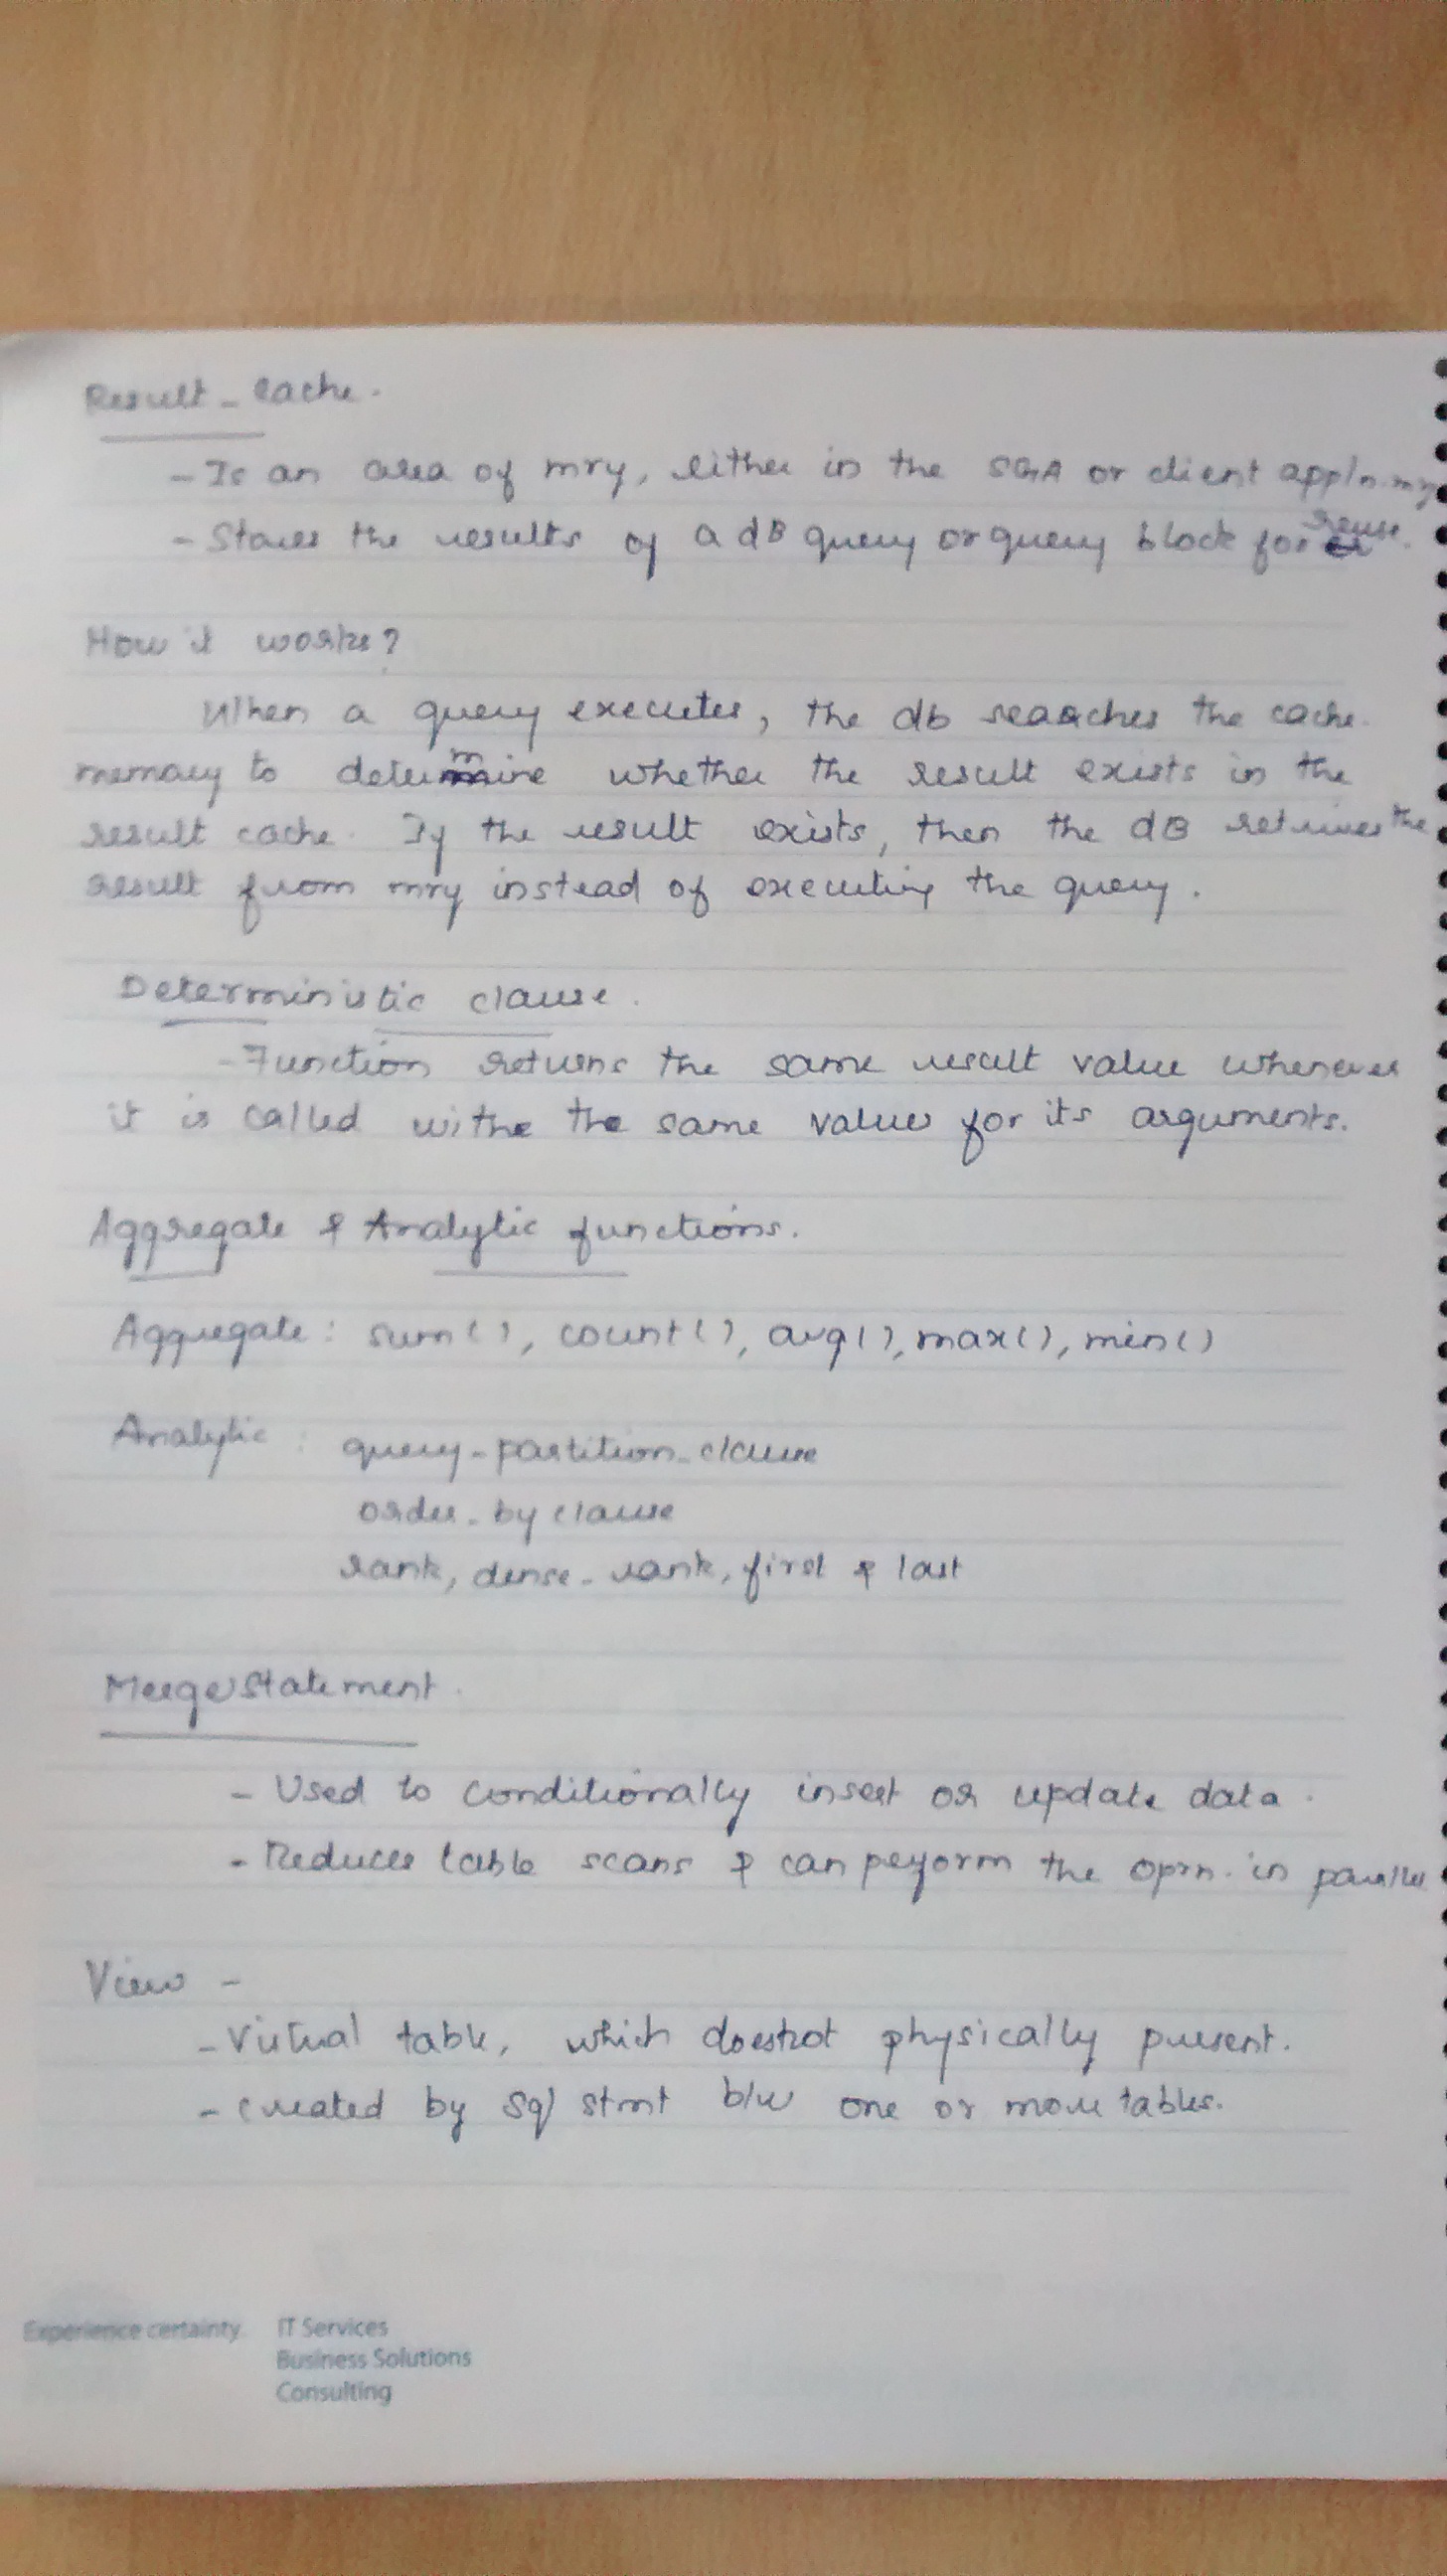 Result - Cache.
- Is an area of mry, either in the SGA or client appln. mry
- Stores the results of a dB query or query block for reuse.
How it works?
When a query executes, the db searches the cache
memory to determine whether the result exists in the
result cache. If the result exists, then the dB retrieves the
result from mry instead of executing the query.
Deterministic clause.
- Function returns the same result value whenever
it is called withe the same values for its arguments.
Aggregate & Analytic functions.
Aggregate : sum(), count(), avg(), max(), min()
Analytic : query-partition-clause
order-by clause
rank, dense-rank, first & last
Merge Statement.
- Used to conditionally insert or update data.
- Reduces table scans & can perform the oprn. in parallel
View -
- Virtual table, which doesnot physically present.
- created by sql stmt b/w one or more tables.
Experience certainty. IT Services
Business Solutions
Consulting